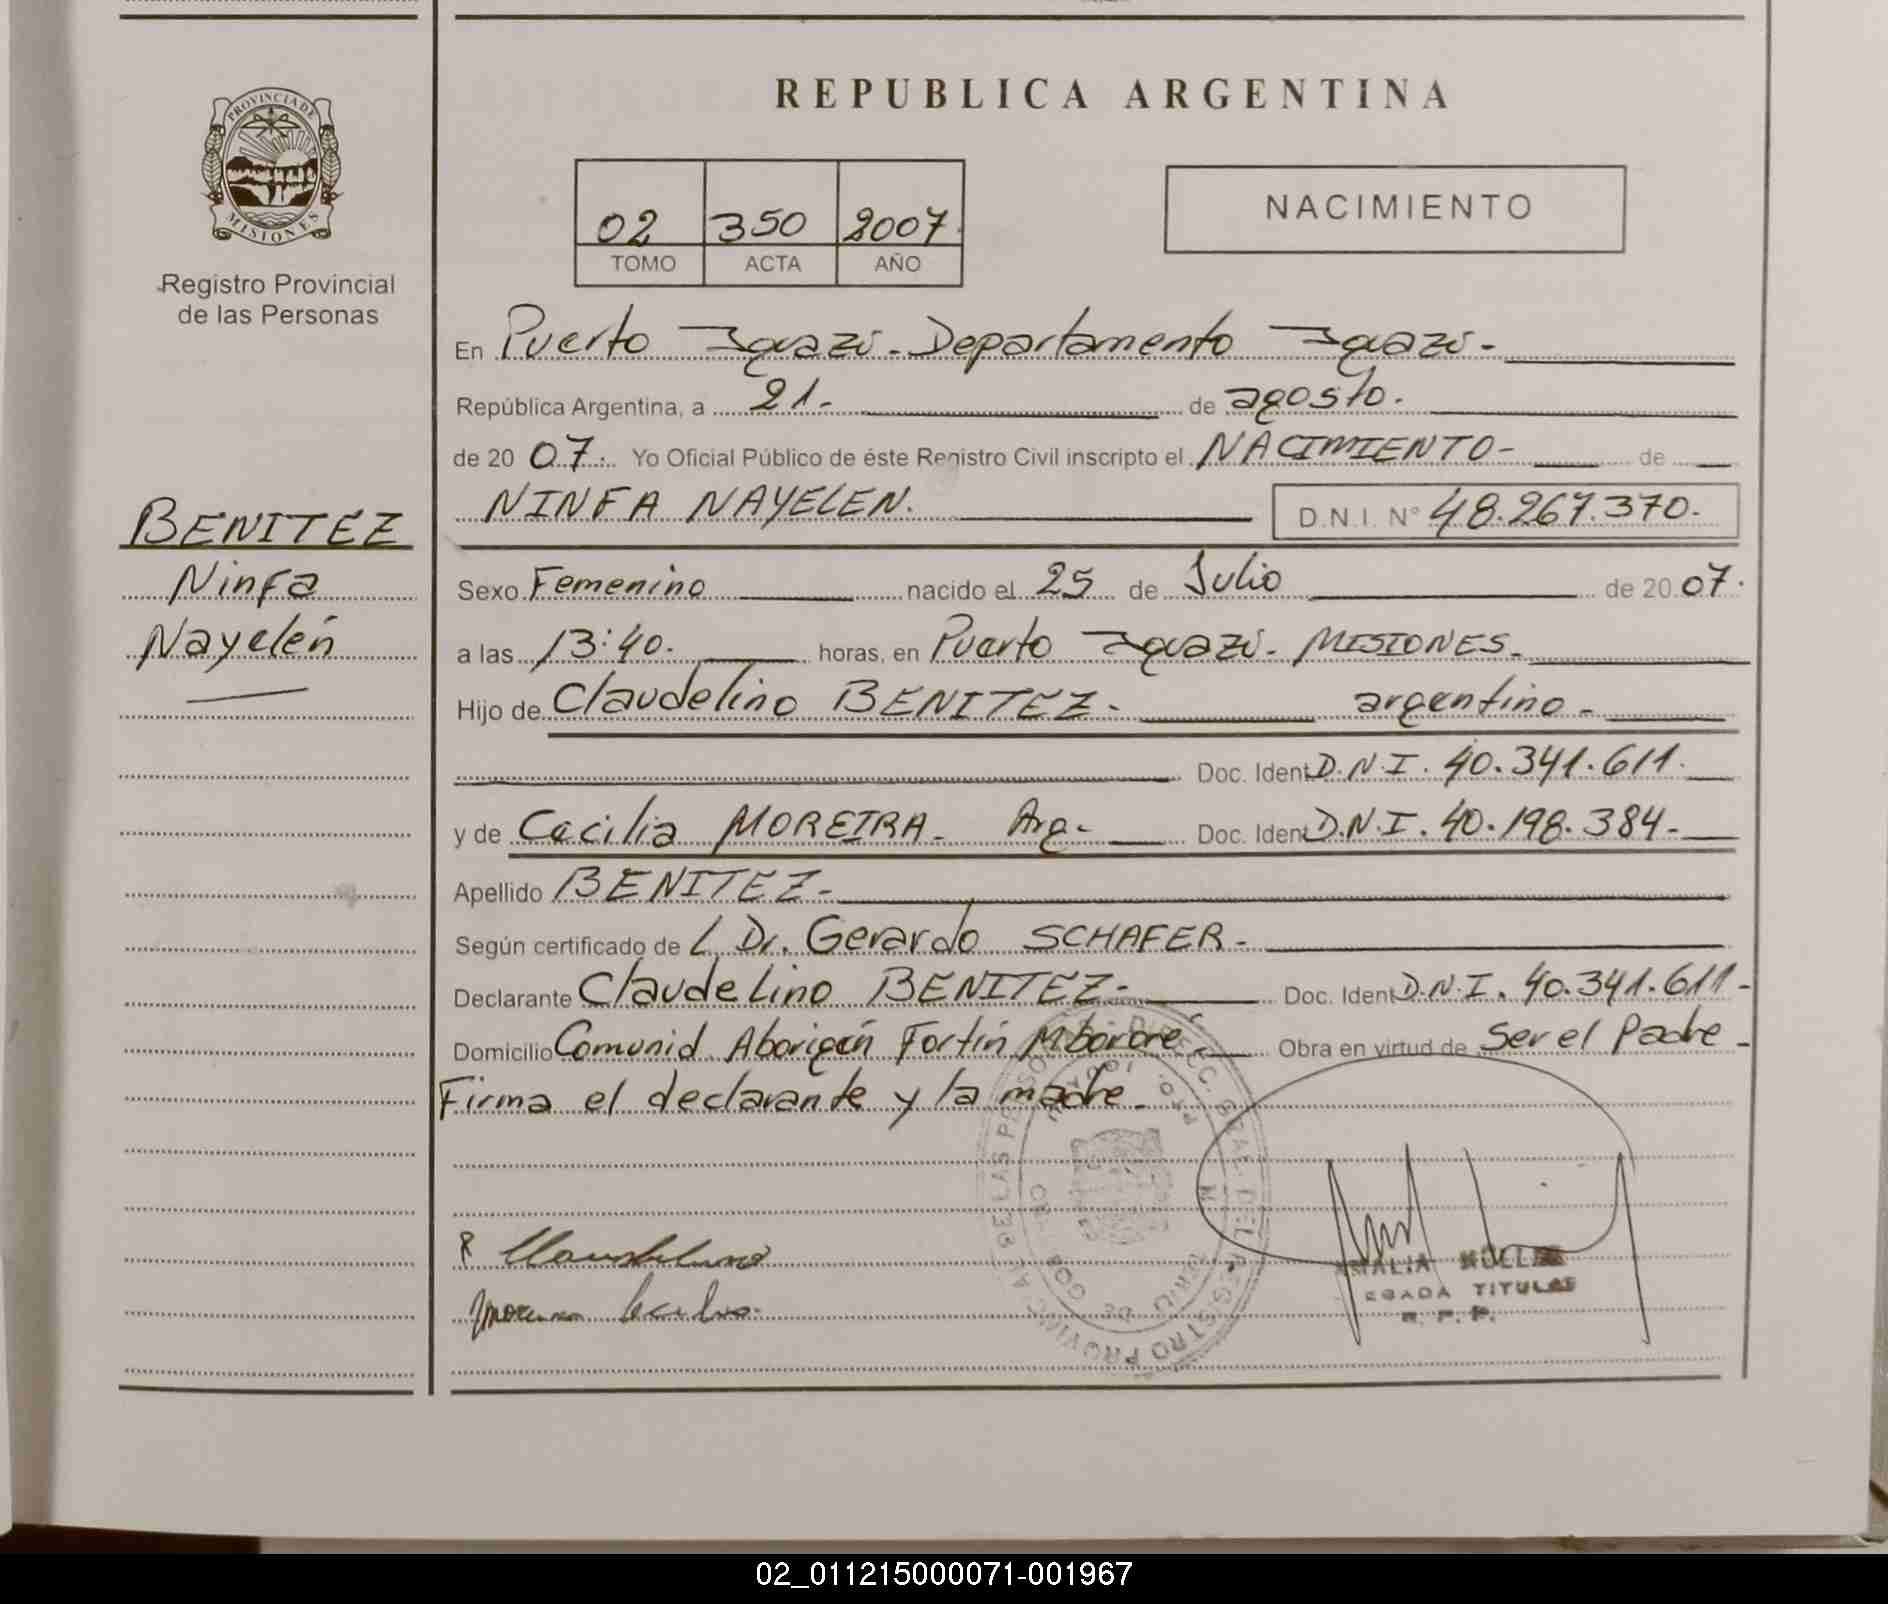 REPUBLICA ARGENTINA
PROVINCIA DE
MISIONES
Registro Provincial
de las Personas
02 350 2007.
TOMO ACTA AÑO
NACIMIENTO
En Puerto Iguazú - Departamento Iguazú -
República Argentina, a 21.- de agosto.
de 20 07. Yo Oficial Público de éste Registro Civil inscripto el NACIMIENTO - de
NINFA NAYELEN. D.N.I. N° 48.267.370.
BENITEZ
Ninfa
Nayelén
Sexo Femenino nacido el 25 de Julio de 20 07.
a las 13:40. horas, en Puerto Iguazú - MISIONES -
Hijo de Claudelino BENITEZ - argentino -
Doc. Ident D.N.I. 40.341.611.
y de Cecilia MOREIRA - Arg - Doc. Ident D.N.I. 40.198.384 -
Apellido BENITEZ -
Según certificado de L Dr. Gerardo SCHAFER -
Declarante Claudelino BENITEZ - Doc. Ident D.N.I. 40.341.611 -
Domicilio Comunid. Aborigen Fortín Mborore, Obra en virtud de Ser el Padre -
Firma el declarante y la madre -
AMALIA
TITULAR
R. P. P.
02_011215000071-001967